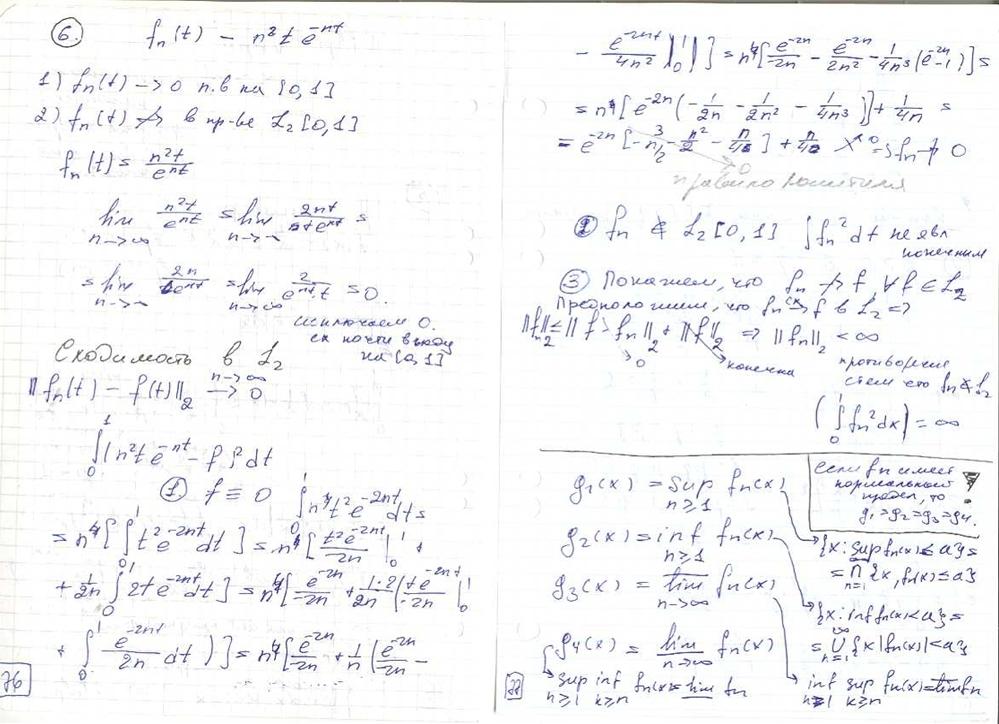 6. fₙ(t) – n² t e^{-nt}
1) fₙ(t) → 0 п.в на [0,1]
2) fₙ(t) ↛ в пр-ве L₂ [0,1]
fₙ(t) = n²t / e^{nt}
lim_{n→∞} n²t / e^{nt} = lim_{n→∞} 2nt / t e^{nt} =
= lim_{n→∞} 2n / e^{nt} = lim_{n→∞} 2 / e^{nt}·t = 0.
исключаем 0.
сх почти всюду
на [0,1]
Сходимость в L₂
‖fₙ(t) – f(t)‖₂ → 0 n→∞
∫₀¹ (n²t e^{-nt} – f)² dt
1 f ≡ 0 ∫₀¹ n⁴t² e^{-2nt} dt =
= n⁴[∫₀¹ t² e^{-2nt} dt] = n⁴[t² e^{-2nt} / -2n |₀¹ +
+ 1/2n ∫₀¹ 2t e^{-2nt} dt] = n⁴[e^{-2n} / -2n + 1·2/2n (t e^{-2nt} / -2n |₀¹
+ ∫₀¹ e^{-2nt} / 2n dt)] = n⁴[e^{-2n} / -2n + 1/n (e^{-2n} / -2n –
76
– e^{-2nt} / 4n² |₀¹)] = n⁴[e^{-2n} / -2n – e^{-2n} / 2n² – 1/4n³ (e^{-2n} – 1)] =
= n⁴[e^{-2n}(-1/2n – 1/2n² – 1/4n³)] + 1/4n =
= e^{-2n}[-n³/2 – n²/2 – n/4] + n/4 ↛ 0 ⇒ fₙ ↛ 0
правило Лопиталя
2 fₙ ∉ L₂ [0,1] ∫fₙ² dt не явл
конечным
3 Покажем, что fₙ ↛ f ∀f ∈ L₂
Предположим, что fₙ →сх f в L₂ ⇒
‖fₙ‖₂ ≤ ‖f – fₙ‖₂ + ‖f‖₂ ⇒ ‖fₙ‖₂ < ∞
→ 0 конечна
противоречие
с тем что fₙ ∉ L₂
(∫₀¹ fₙ² dx) = ∞
Если fn имеет
нормальный
предел, то
g₁ = g₂ = g₃ = g₄.
!
g₁(x) = sup_{n≥1} fₙ(x)
{x: sup fₙ(x) ≤ a} =
= ∩_{n=1} {x, fₙ(x) ≤ a}
g₂(x) = inf_{n≥1} fₙ(x)
{x: inf fₙ(x) < a} =
= ∪_{n=1}^∞ {x | fₙ(x) | < a}
g₃(x) = lim̅_{n→∞} fₙ(x)
inf_{n≥1} sup_{k≥n} fₙ(x) = lim̅ fn
g₄(x) = lim̲_{n→∞} fₙ(x)
sup_{n≥1} inf_{k≥n} fₙ(x) = lim̲ fn
77